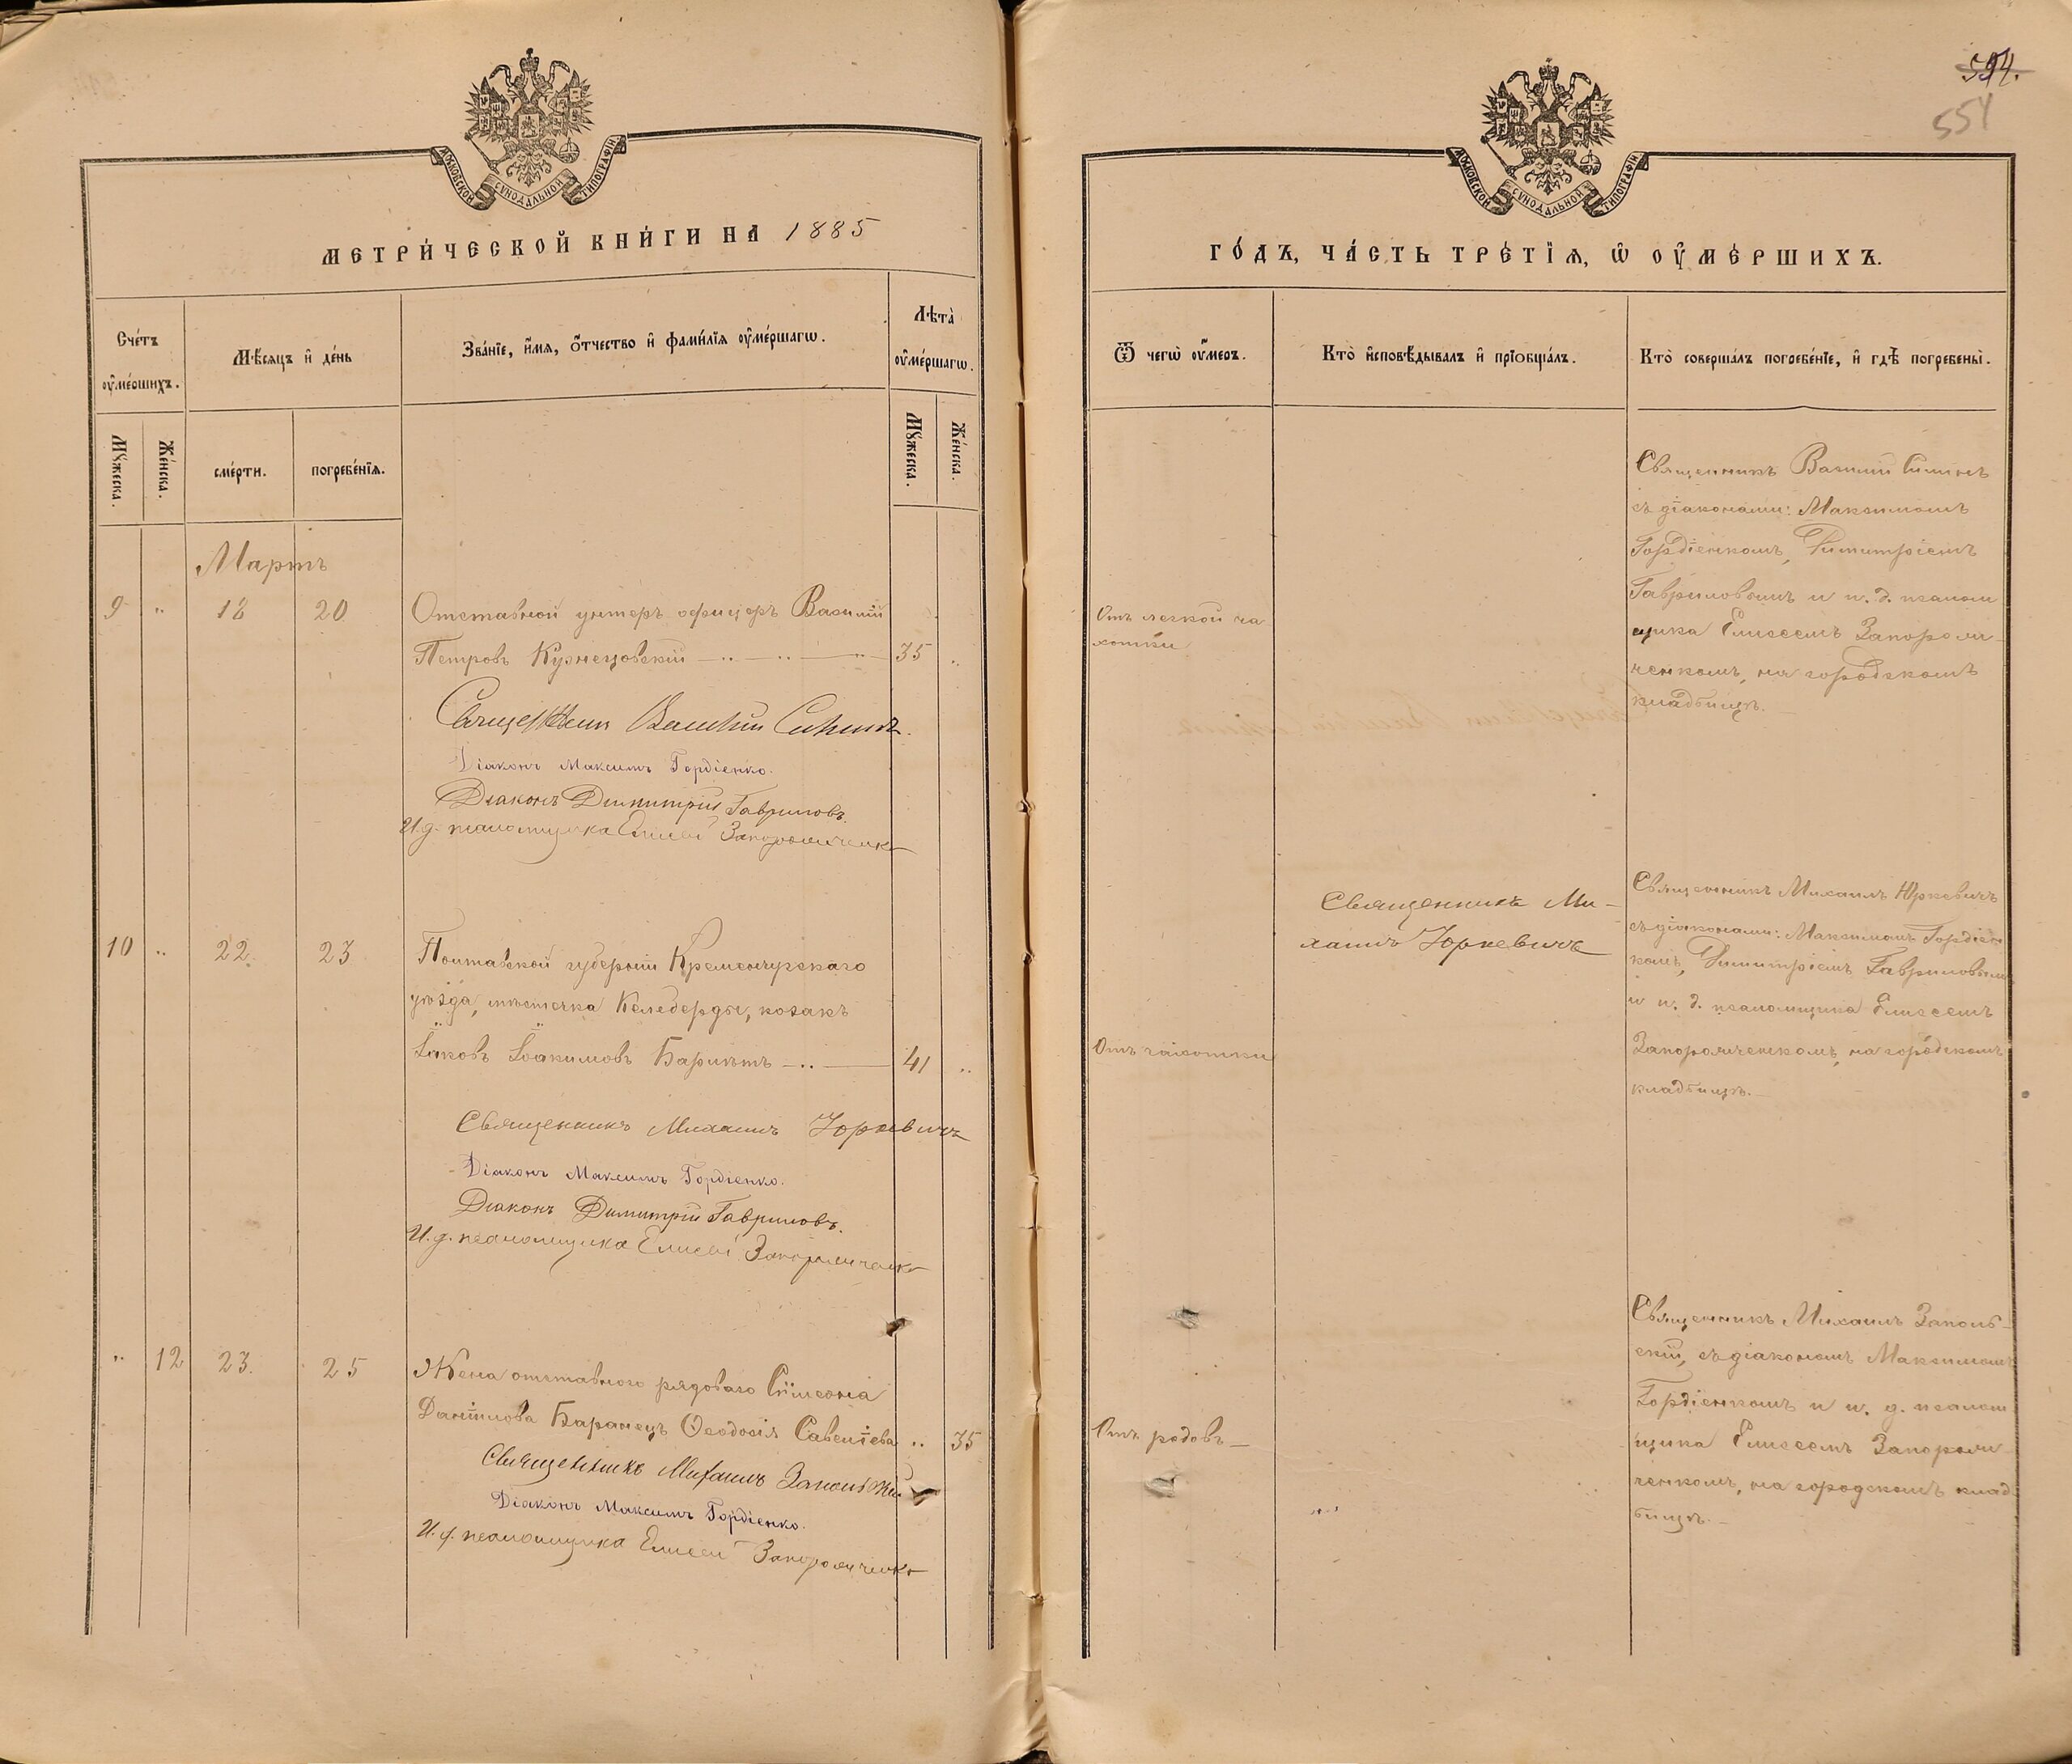 МОСКОВСКОЙ СѴНОДАЛЬНОЙ ТИПОГРАФІИ
МЕТРИ́ЧЕСКОЙ КНИ́ГИ НА 1885
Сче́тъ ᲂу҆ме́ршихъ.
Мѣ́сяцъ и҆ де́нь
Зва́нїе, и҆́мя, ѻ҆́тчество и҆ фами́лїя ᲂу҆ме́ршагѡ.
Лѣта̀ ᲂу҆ме́ршагѡ.
Мꙋ́жеска.
Же́нска.
сме́рти.
погребе́нїя.
Мꙋ́жеска.
Же́нска.
Мартъ
9 " 18 20 Отставной унтеръ офицеръ Василій
Петровъ Кузнецовскій 35 "
Священник Василій
Діаконъ Максимъ Гордіенко.
Діаконъ Димитрій Гавриловъ.
И. д. псаломщика Елисей Запорожченко
10 " 22. 23 Полтавской губерніи Кременчугскаго
уѣзда, мѣстечка Келеберды, козакъ
Іаковъ Іоакимовъ 41 "
Священникъ Михаилъ Юркевичъ
Діаконъ Максимъ Гордіенко.
Діаконъ Димитрій Гавриловъ.
И. д. псаломщика Елисей Запорожченко
" 12 23. 25 Жена отставного рядоваго Сѵмеона
Даніилова Баранецъ Ѳеодосія Савеліева " 35
Священникъ Михаилъ Запольскій
Діаконъ Максимъ Гордіенко.
И. д. псаломщика Елисей Запорожченко
594.
554
МОСКОВСКОЙ СѴНОДАЛЬНОЙ ТИПОГРАФІИ
ГО́ДЪ, ЧА́СТЬ ТРЕ́ТЇЯ, Ѡ҆ ОУ҆МЕ́РШИХЪ.
Ѿ чегѡ̀ ᲂу҆́меръ.
Кто̀ и҆сповѣ́дывалъ и҆ прїѻбща́лъ.
Кто̀ соверша́лъ погребе́нїе, и҆ гдѣ̀ погребены̀.
Отъ легкой ча
хотки
Священникъ Василій
съ діаконами: Максимомъ
Гордіенкомъ, Димитріемъ
Гавриловымъ и и. д. псалом
щика Елисеемъ Запорож-
ченкомъ, на городскомъ
кладбищѣ.
Отъ чахотки
Священникъ Ми-
хаилъ Юркевичъ
Священникъ Михаилъ Юркевичъ
съ діаконами: Максимомъ Гордіен
комъ, Димитріемъ Гавриловымъ
и и. д. псаломщика Елисеемъ
Запорожченкомъ, на городскомъ
кладбищѣ.
Отъ родовъ
Священникъ Михаилъ Заполь-
скій, съ діакономъ Максимомъ
Гордіенкомъ и и. д. псалом
щика Елисеемъ Запорож-
ченкомъ, на городскомъ клад
бищѣ.